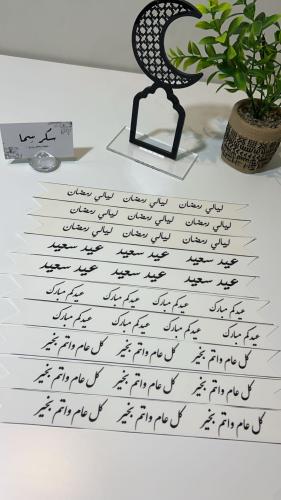 سكر سما
ليالي رمضان ليالي رمضان ليالي رمضان
ليالي رمضان ليالي رمضان ليالي رمضان
ليالي رمضان ليالي رمضان ليالي رمضان
عيد سعيد عيد سعيد عيد سعيد
عيد سعيد عيد سعيد عيد سعيد
عيدكم مبارك عيدكم مبارك عيدكم مبارك عيدكم مبارك
عيدكم مبارك عيدكم مبارك عيدكم مبارك عيدكم مبارك
كل عام وانتم بخير كل عام وانتم بخير كل عام وانتم بخير
كل عام وانتم بخير كل عام وانتم بخير كل عام وانتم بخير
كل عام وانتم بخير كل عام وانتم بخير كل عام وانتم بخير